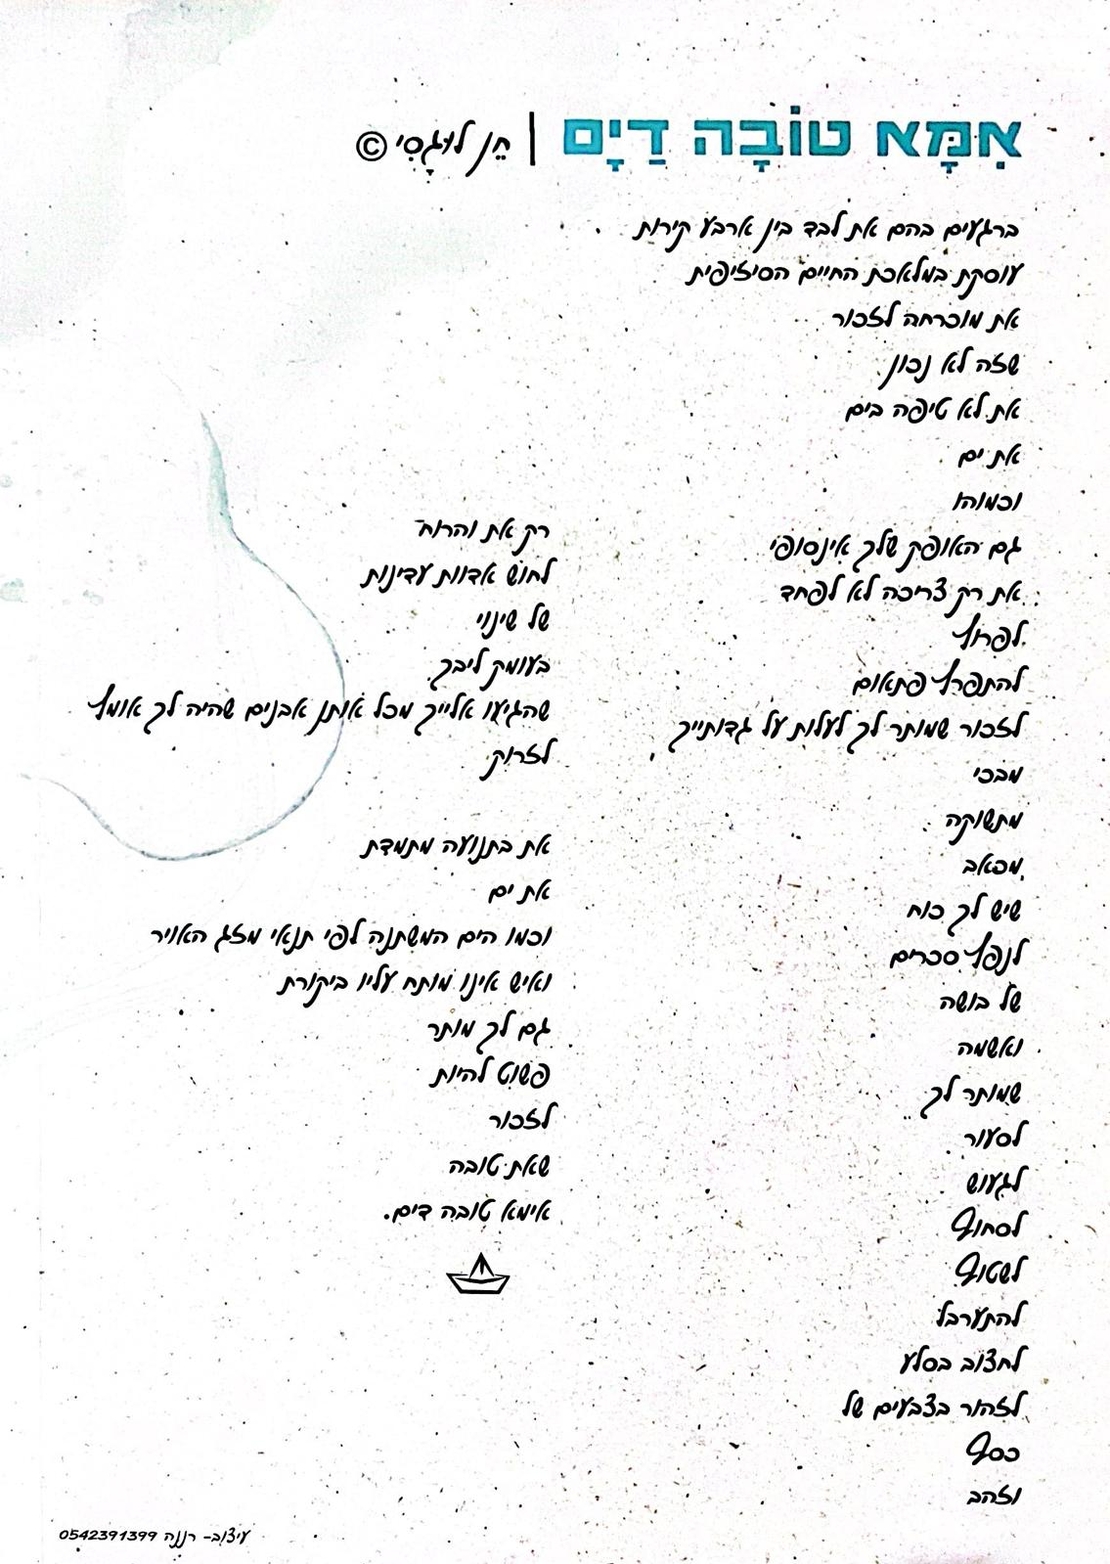 אִמָּא טוֹבָה דַיָּם | חֵן לוּגָסִי ©
ברגעים בהם את לבד בין ארבע קירות
עוסקת במלאכת החיים הסיזיפית
את מוכרחה לזכור
שזה לא נכון
את לא טיפה בים
את ים
וכמוהו
גם האופק שלך אינסופי
את רק צריכה לא לפחד
לפרוץ
להתפרץ פתאום
לזכור שמותר לך לעלות על גדותייך
מבכי
מתשוקה
מכאב
שיש לך כוח
לנפץ סכרים
של בושה
ואשמה
שמותר לך
לסעור
לגעוש
לסחוף
לשטוף
להתערבל
לחצוב בסלע
לזהור בצבעים של
כסף
וזהב
רק את והרוח
לחוש אדוות עדינות
של שינוי
בעומק ליבך
שהגיעו אלייך מכל אותן אבנים שהיה לך אומץ
לזרוק
את בתנועה מתמדת
את ים
וכמו הים המשתנה לפי תנאי מזג האויר
ואיש אינו מותח עליו ביקורת
גם לך מותר
פשוט להיות
לזכור
שאת טובה
אימא טובה דים.
עיצוב- רננה 0542391399